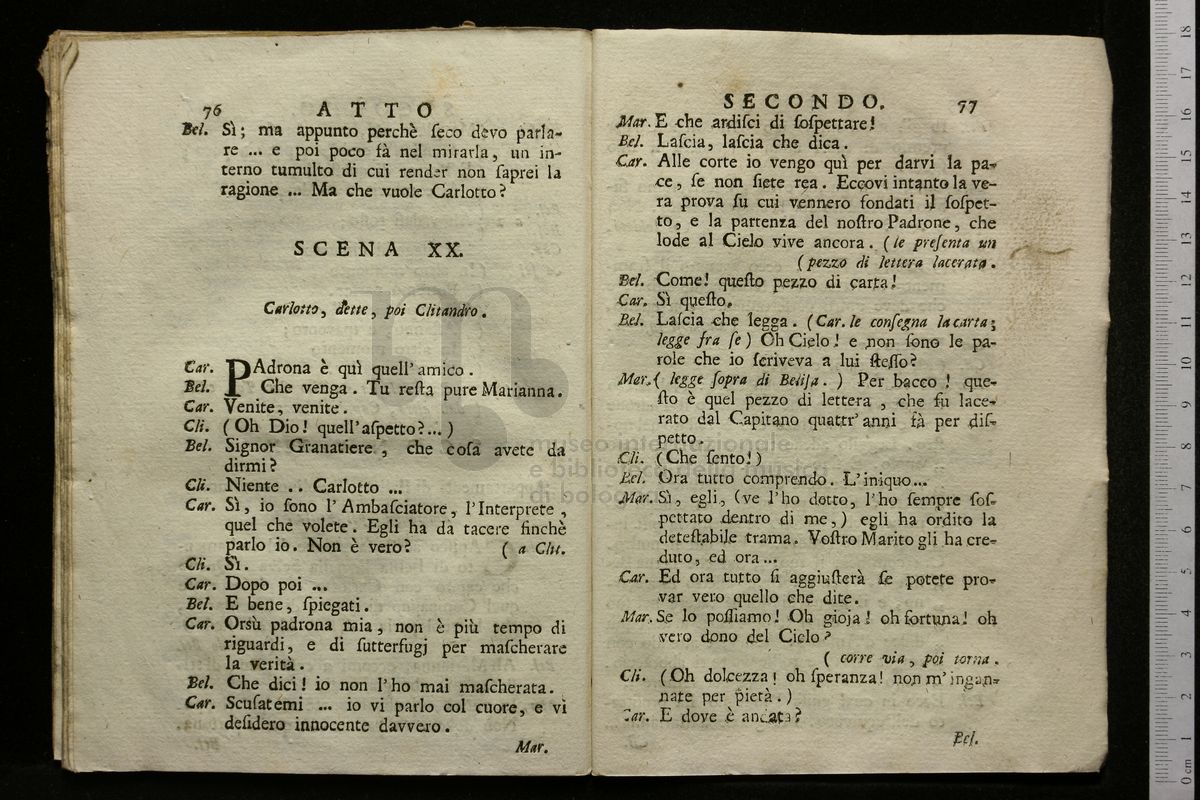 76 ATTO
Bel. Sì; ma appunto perchè ſeco devo parla-
re ... e poi poco fà nel mirarla, un in-
terno tumulto di cui render non ſaprei la
ragione ... Ma che vuole Carlotto?
SCENA XX.
Carlotto, dette, poi Clitandro.
Car. PAdrona è quì quell' amico.
Bel. Che venga. Tu reſta pure Marianna.
Car. Venite, venite.
Cli. (Oh Dio! quell'aſpetto?...)
Bel. Signor Granatiere, che coſa avete da
dirmi?
Cli. Niente .. Carlotto ...
Car. Sì, io ſono l'Ambaſciatore, l'Interprete,
quel che volete. Egli ha da tacere finchè
parlo io. Non è vero? ( a Clit.
Cli. Sì.
Car. Dopo poi ...
Bel. E bene, ſpiegati.
Car. Orsù padrona mia, non è più tempo di
riguardi, e di ſutterfugj per maſcherare
la verità.
Bel. Che dici! io non l'ho mai maſcherata.
Car. Scuſatemi ... io vi parlo col cuore, e vi
deſidero innocente davvero.
Mar.
SECONDO. 77
Mar. E che ardiſci di ſoſpettare!
Bel. Laſcia, laſcia che dica.
Car. Alle corte io vengo quì per darvi la pa-
ce, ſe non ſiete rea. Eccovi intanto la ve-
ra prova ſu cui vennero fondati il ſoſpet-
to, e la partenza del noſtro Padrone, che
lode al Cielo vive ancora. (le preſenta un
(pezzo di lettera lacerato.
Bel. Come! queſto pezzo di carta!
Car. Sì queſto.
Bel. Laſcia che legga. (Car. le conſegna la carta;
legge fra ſe) Oh Cielo! e non ſono le pa-
role che io ſcriveva a lui ſteſſo?
Mar. ( legge ſopra di Beliſa. ) Per bacco! que-
ſto è quel pezzo di lettera, che fu lace-
rato dal Capitano quattr' anni fà per diſ-
petto.
Cli. (Che ſento!)
Bel. Ora tutto comprendo. L'iniquo...
Mar. Sì, egli, (ve l'ho dotto, l'ho ſempre ſoſ-
pettato dentro di me,) egli ha ordito la
deteſtabile trama. Voſtro Marito gli ha cre-
duto, ed ora...
Car. Ed ora tutto ſi aggiuſterà ſe potete pro-
var vero quello che dite.
Mar. Se lo poſſiamo! Oh gioja! oh fortuna! oh
vero dono del Cielo?
( corre via, poi torna.
Cli. (Oh dolcezza! oh ſperanza! non m'ingan-
nate per pietà.)
Car. E dove è andata?
Bel.
museo internazionale
e biblioteca della musica
di bologna
0 cm 1 2 3 4 5 6 7 8 9 10 11 12 13 14 15 16 17 18